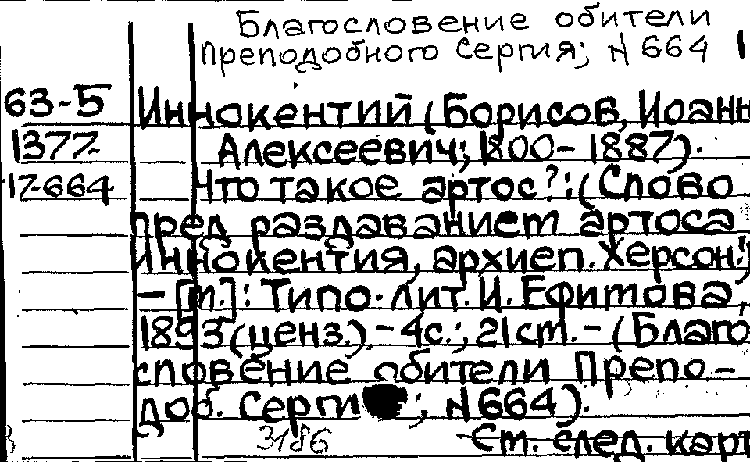 Благословение обители
Преподобного Сергия; N 664
63-5 Иннокентий (Борисов, Иоанн
1377- Алексеевич; 1800-1887).
17-664 Что такое артос?: (Слово
пред раздаванием артоса
Иннокентия, архиеп. Херсон.)
- [М.]: Типо-лит. И. Ефимова,
1893 (ценз.). - 4с.; 21см. - (Благо
словение обители Препо-
доб. Серги ; N664).
3186 См. след. карт